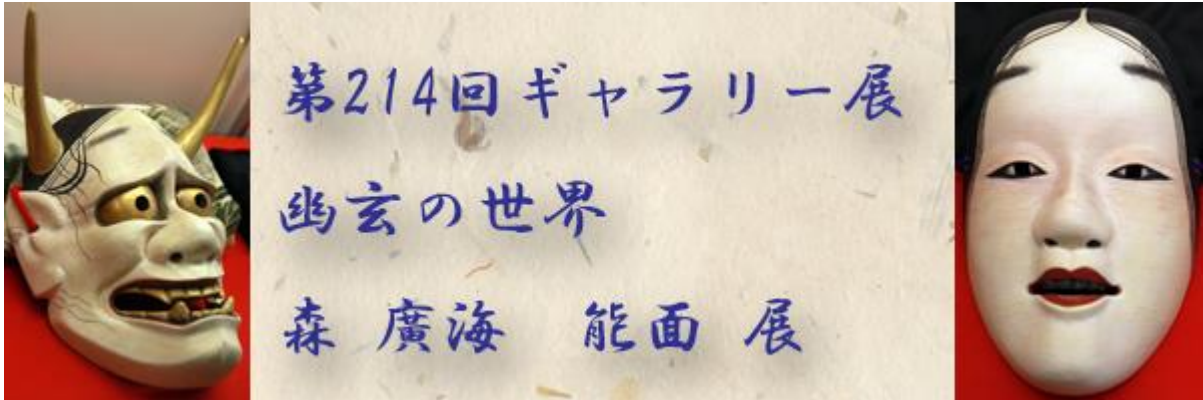 第214回ギャラリー展
幽玄の世界
森 廣海　能面 展